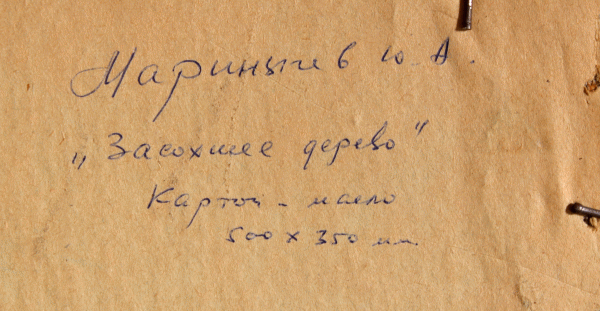 Маринычев Ю.А.
„Засохшее дерево"
Картон - масло
500 х 350 мм.